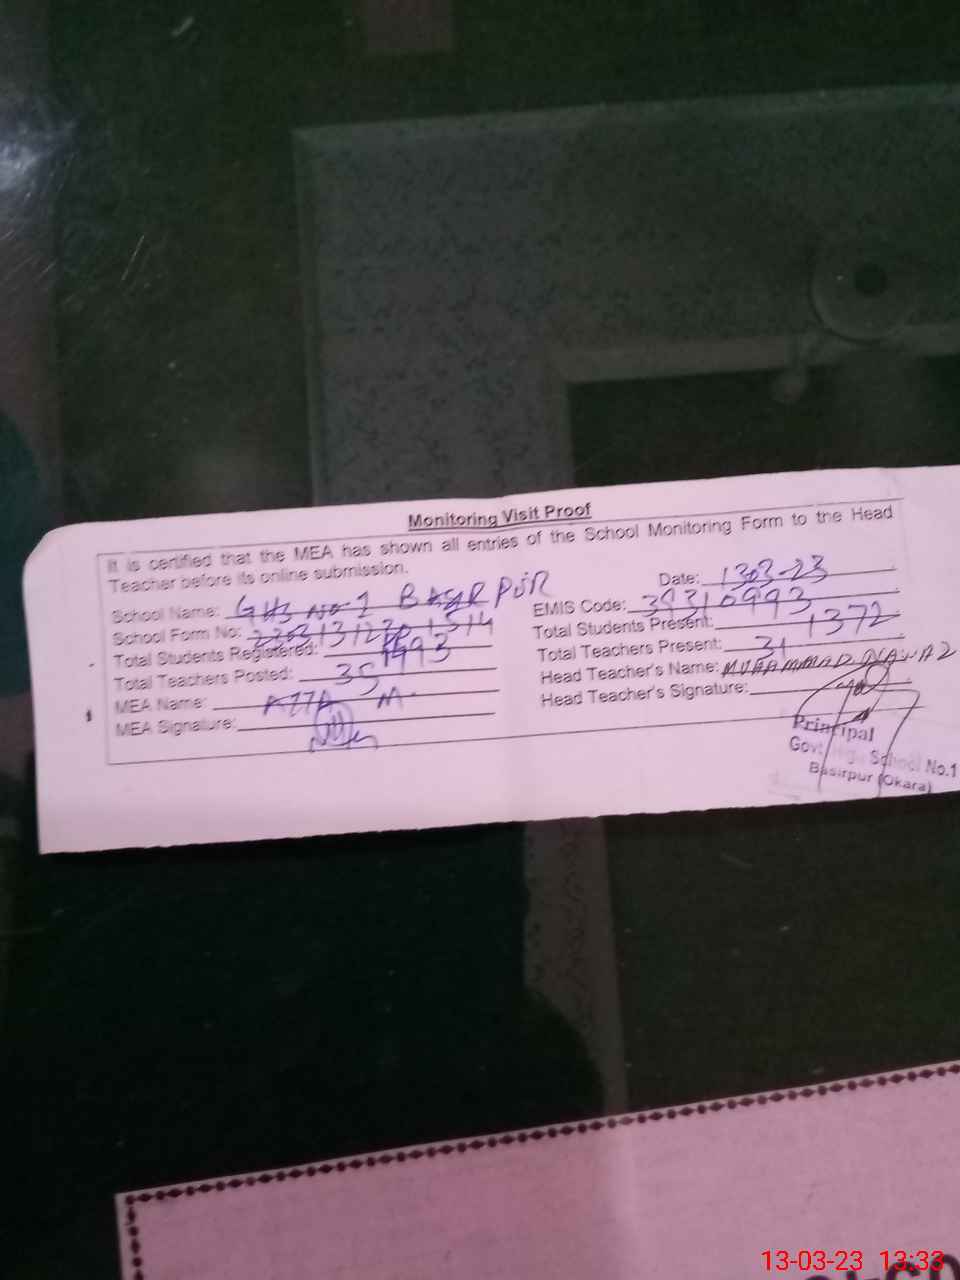 Monitoring Visit Proof
It is certified that the MEA has shown all entries of the School Monitoring Form to the Head
Teacher before its online submission.
Date: 1303-23
School Name: GHS NO-1 BASIR PUR
EMIS Code: 39310993
School Form No:
Total Students Present: 1372
Total Students Registered: 1993
Total Teachers Present: 31
Total Teachers Posted: 35
Head Teacher's Name: MUHAMMAD NAWAZ
MEA Name: ATTA M.
Head Teacher's Signature:
MEA Signature:
Principal
Govt. High School No.1
Basirpur (Okara)
13-03-23 13:33